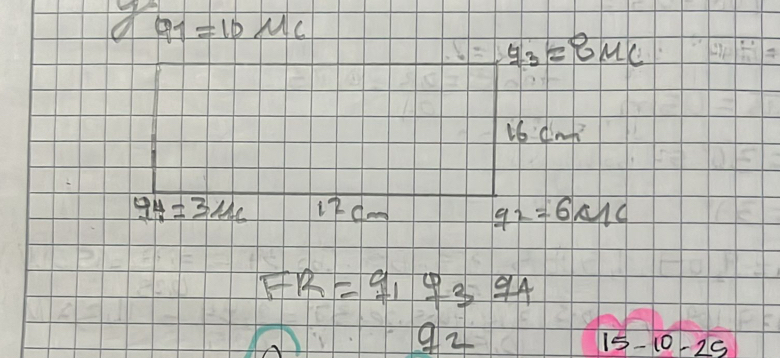 q1 = 10 MC
q3 = 8 MC
16 cm
q4 = 3 Mc 12 cm q2 = 6 MC
FR = q1 q3 q4
q2 15-10-25